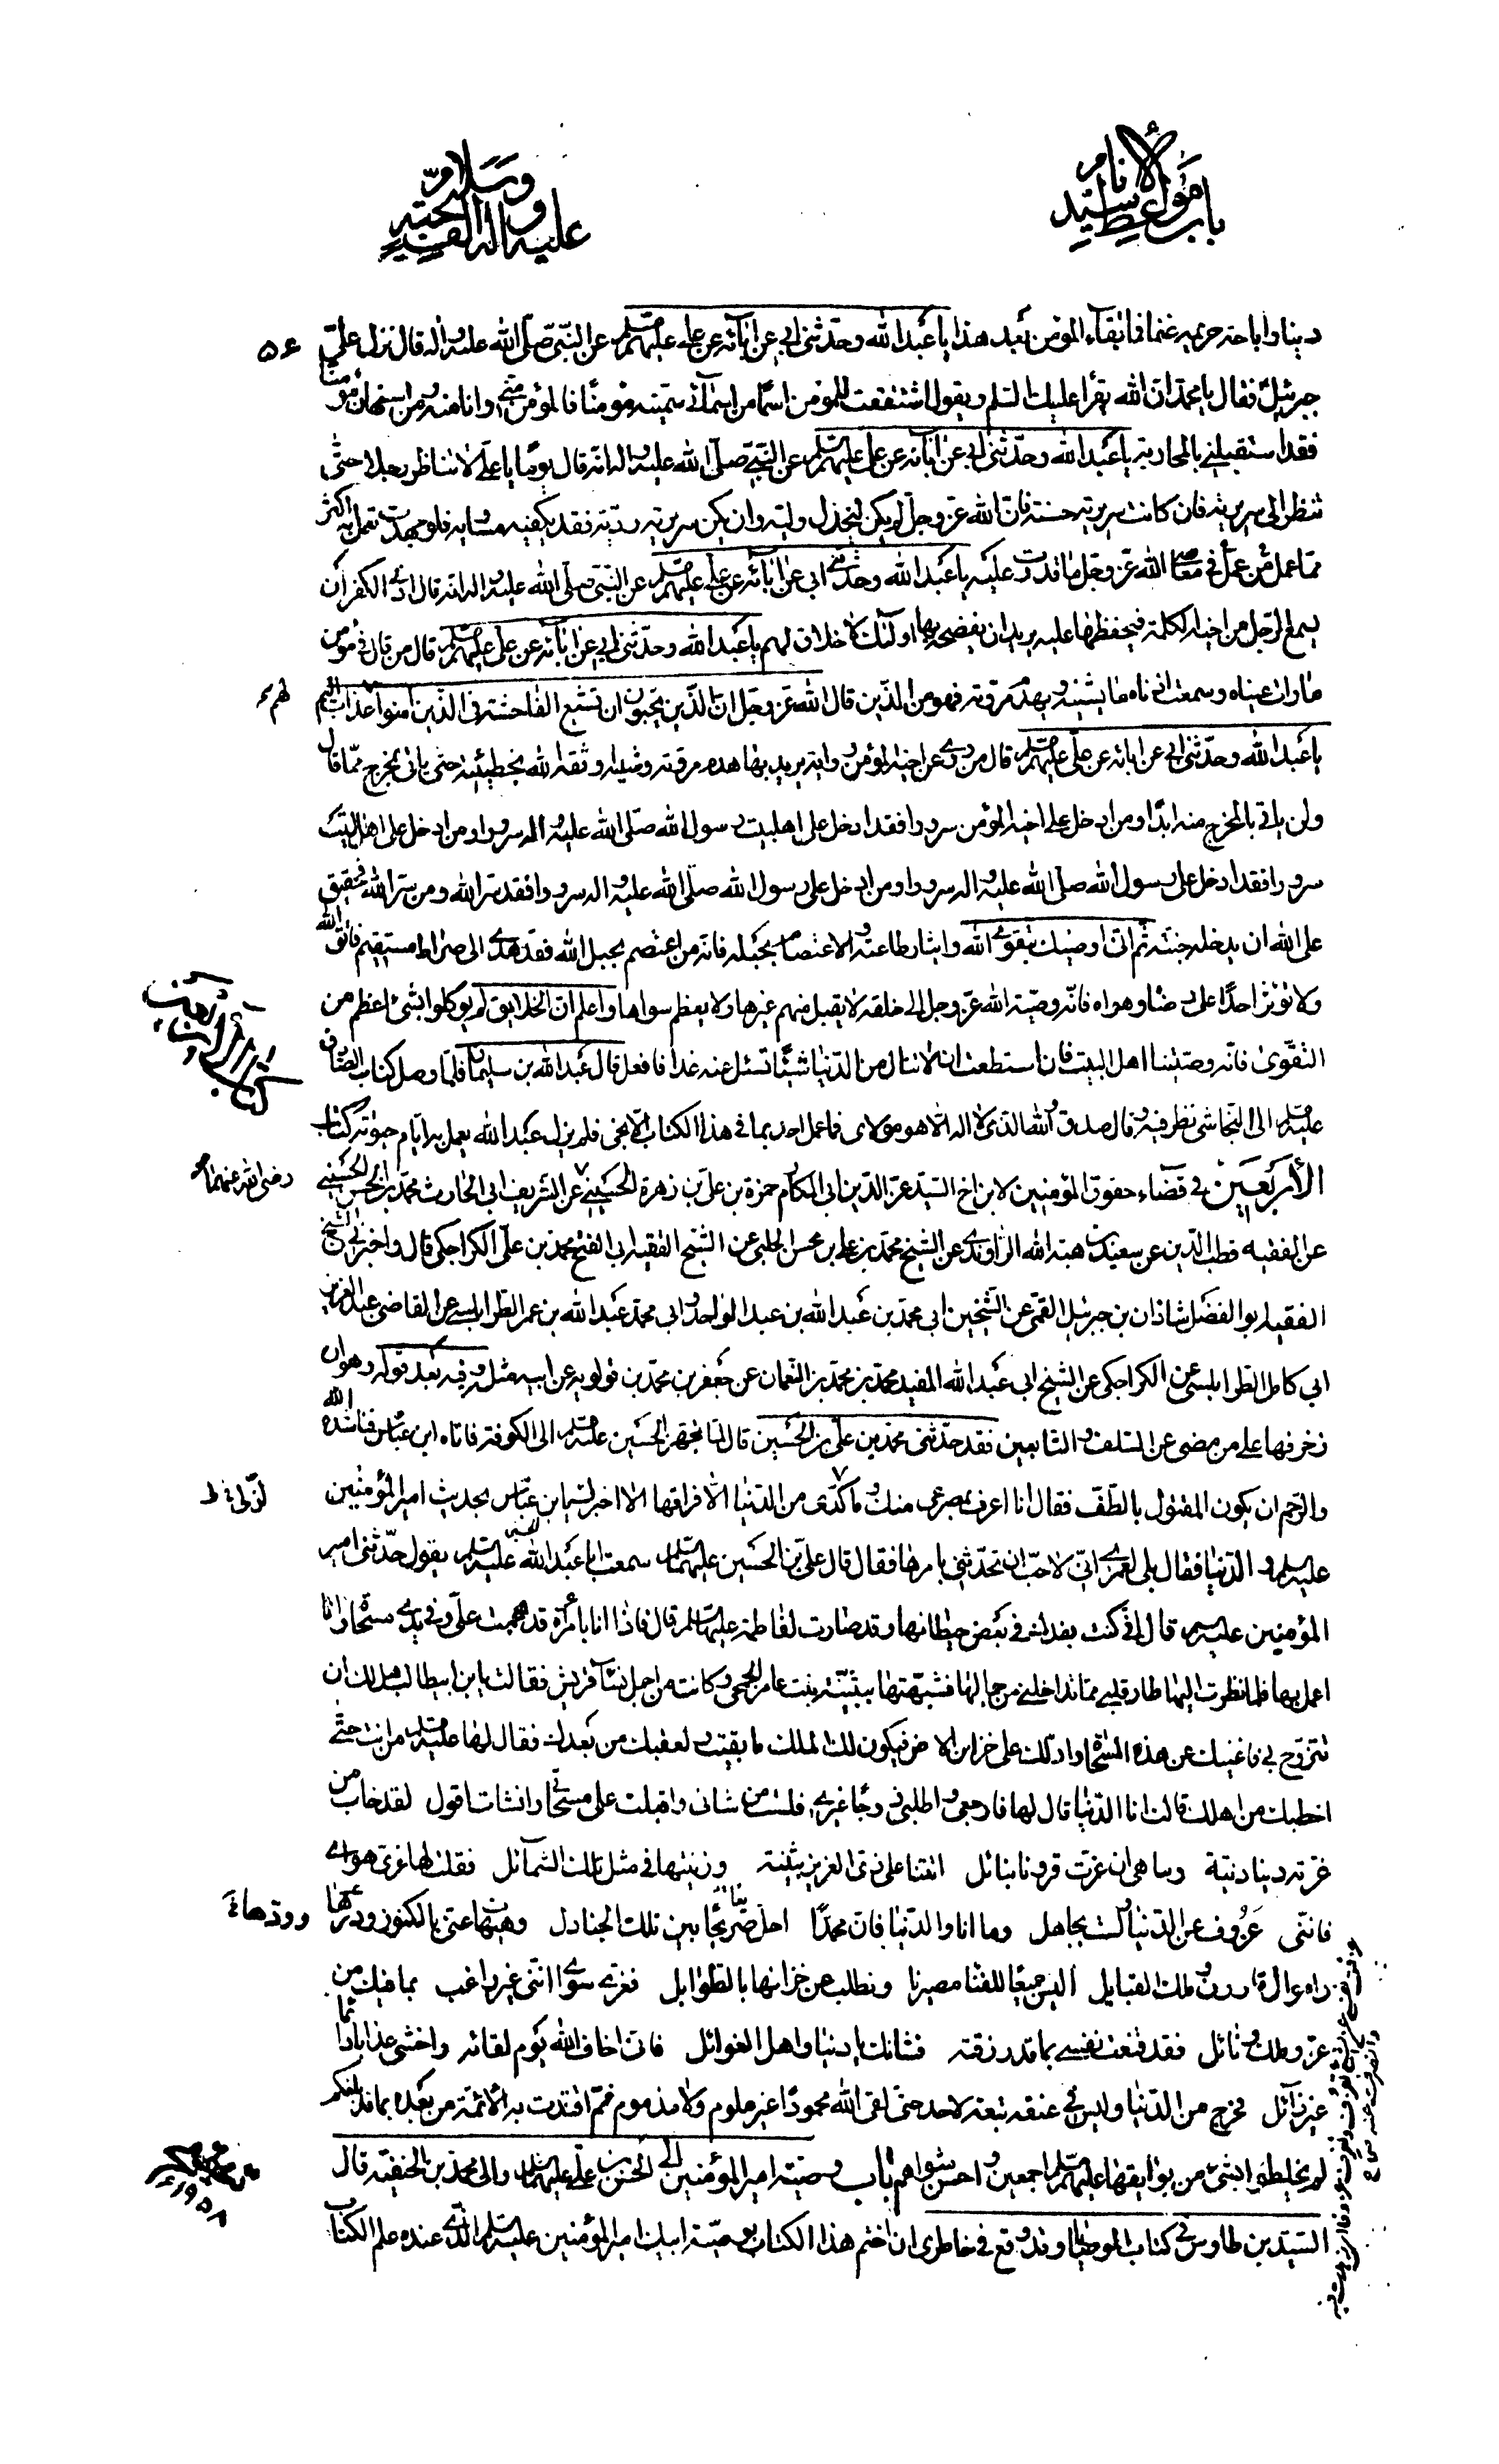 باب مواعظ سيد الأنام
عليه وآله ألف التحية وسلام
٥٦
دينا واباحة حريمه غنما فما بقاء المؤمن بعد هذا يا عبد الله وحدثني ابي عن ابائه عن علي عليهم السلم عن النبي صلى الله عليه واله قال نزل علي
جبرئيل فقال يا محمد ان الله يقرأ عليك السلم ويقول اشتققت للمؤمن اسما من اسمائي سميته مؤمنا فالمؤمن مني وانا منه من استهان مؤمنا
فقد استقبلني بالمحاربة يا عبد الله وحدثني ابي عن ابائه عن علي عليهم السلم عن النبي صلى الله عليه واله انه قال يوما يا علي لا تناظر رجلا حتى
تنظر الى سريرته فان كانت سريرته حسنة فان الله عز وجل لم يكن ليخذل وليه وان يكن سريرته ردية فقد يكفيه مساويه فلو جهدت تعمل به اكثر
مما عمل من عمل في معاصي الله عز وجل ما قدرت عليه يا عبد الله وحدثني ابي عن ابائه عن علي عليهم السلم عن النبي صلى الله عليه واله انه قال ادنى الكفر ان
يسمع الرجل من اخيه الكلمة فيحفظها عليه يريد ان يفضحه بها اولئك لا خلاق لهم يا عبد الله وحدثني ابي عن ابائه عن علي عليهم السلم قال من قال في مؤمن
ما رات عيناه وسمعت اذناه ما يشينه ويهدم مروته فهو من الذين قال الله عز وجل ان الذين يحبون ان تشيع الفاحشة في الذين امنوا عذاب اليم
لهم
يا عبد الله وحدثني ابي عن ابائه عن علي عليهم السلم قال من روى عن اخيه المؤمن رواية يريد بها هدم مروته وثلبه وثقه الله بخطيئته حتى ياتي بمخرج مما قال
ولن ياتي بالمخرج منه ابدا ومن ادخل على اخيه المؤمن سرورا فقد ادخل على اهلبيت رسول الله صلى الله عليه واله سرورا ومن ادخل على اهل البيت
سرورا فقد ادخل على رسول الله صلى الله عليه واله سرورا ومن ادخل على رسول الله صلى الله عليه واله سرورا فقد سر الله ومن سر الله فحقيق
على الله ان يدخله جنته ثم اني اوصيك بتقوى الله وايثار طاعته والاعتصام بحبله فانه من اعتصم بحبل الله فقد هدى الى صراط مستقيم فاتق الله
ولا تؤثر احدا على رضاه وهواه فانه وصية الله عز وجل الى خلقه لا يقبل منهم غيرها ولا يعظم سواها واعلم ان الخلايق لم يوكلوا بشئ اعظم من
التقوى فانه وصيتنا اهل البيت فان استطعت ان لا تنال من الدنيا شيئا تسئل عنه غدا فافعل قال عبد الله بن سليمان فلما وصل كتاب الصادق
عليه السلم الى النجاشي نظر فيه وقال صدق والله الذي لا اله الا هو مولاى فما عمل احد بما في هذا الكتاب الا نجى فلم يزل عبد الله يعمل به ايام حيوته كتاب
الأربعين في قضاء حقوق المؤمنين لابن اخ السيد عز الدين ابي المكارم حمزة بن علي بن زهرة الحسيني عن الشريف ابي الحارث محمد بن الحسن الحسيني
رضى الله عنهما
عن الفقيه قطب الدين عن سعيد بن هبة الله الراوندي عن الشيخ محمد بن علي بن محسن الحلبي عن الشيخ الفقيه ابي الفتح محمد بن علي الكراجكي قال واخبرني الشيخ
الفقيه ابو الفضل شاذان بن جبرئيل القمي عن الشيخين ابي محمد بن عبد الله بن عبد الواحد وابي محمد عبد الله بن عمر الطرابلسي عن القاضي عبد العزيز
ابي كامل الطرابلسي عن الكراجكي عن الشيخ ابي عبد الله المفيد محمد بن محمد بن النعمان عن جعفر بن محمد بن قولويه عن ابيه مثله وفيه بعد قوله وهوان
زخرفها على من مضى عن السلف والتابعين فقد حدثني محمد بن علي بن الحسين قال لما تجهز الحسين عليه السلم الى الكوفة فاتاه ابن عباس فناشده الله
والرحم ان يكون المقتول بالطف فقال انا اعرف بمصرعي منك وما كدى من الدنيا الا فراقها الا اخبرك يا ابن عباس بحديث امير المؤمنين
عليه السلم والدنيا فقال بلى لعمرى اني لاحب ان تحدثني بامرها فقال قال علي بن الحسين عليهما السلم سمعت ابا عبد الله الحسين عليه السلم يقول حدثني امير
المؤمنين عليه السلم قال اني كنت بفدك في بعض حيطانها وقد صارت لفاطمة عليها السلم قال فاذا انا بامرأة قد هجمت علي وفي يدي مسحاة وانا
اعمل بها فلما نظرت اليها طار قلبي مما تداخلني من جمالها فشبهتها ببثينة بنت عامر الجمحي وكانت من اجمل نساء قريش فقالت يا ابن ابيطالب هل لك ان
تتزوج بي فاغنيك عن هذه المسحاة وادلك على خزاين الارض فيكون لك الملك ما بقيت ولعقبك من بعدك فقال لها عليه السلم من انت حتى
اخطبك من اهلك قالت انا الدنيا قال لها فارجعي واطلبي زوجا غيري فلست من شاني واقبلت على مسحاتي وانشات اقول لقد خاب من
غرته دنيا دنية وما هي ان غرت قرونا بنائل اتتنا على زي العزيز بثينة وزينتها في مثل تلك الشمائل فقلت لها غري سواي
فانني عزوف عن الدنيا ولست بجاهل وما انا والدنيا فان محمدا احل صريعا بين تلك الجنادل وهبها عني بالكنوز ودرها
وودها
واموال قارون وملك القبايل اليس جميعا للفنا مصيرنا ونطلب من خزانها بالطوايل فغري سواي انني غير راغب بما فيك من
عز وملك ونائل فقد قنعت نفسي بما قد رزقته فشانك يا دنيا واهل الغوائل فاني اخاف الله يوم لقائه واخشى عذابا دائما
غير زائل فخرج من الدنيا وليس في عنقه تبعة لاحد حتى لقى الله محمودا غير ملوم ولا مذموم ثم اقتدت به الائمة من بعده بما قد بلغكم
لم يتلطخوا بشئ من بوايقها عليهم السلم اجمعين واحسن مثواهم باب وصية امير المؤمنين الى الحسن بن علي عليهما السلم والى محمد بن الحنفية قال
السيد بن طاوس في كتاب الوصايا وقد وقع في خاطري ان اختم هذا الكتاب بوصية ابيك امير المؤمنين عليه السلم الذي عنده علم الكتاب